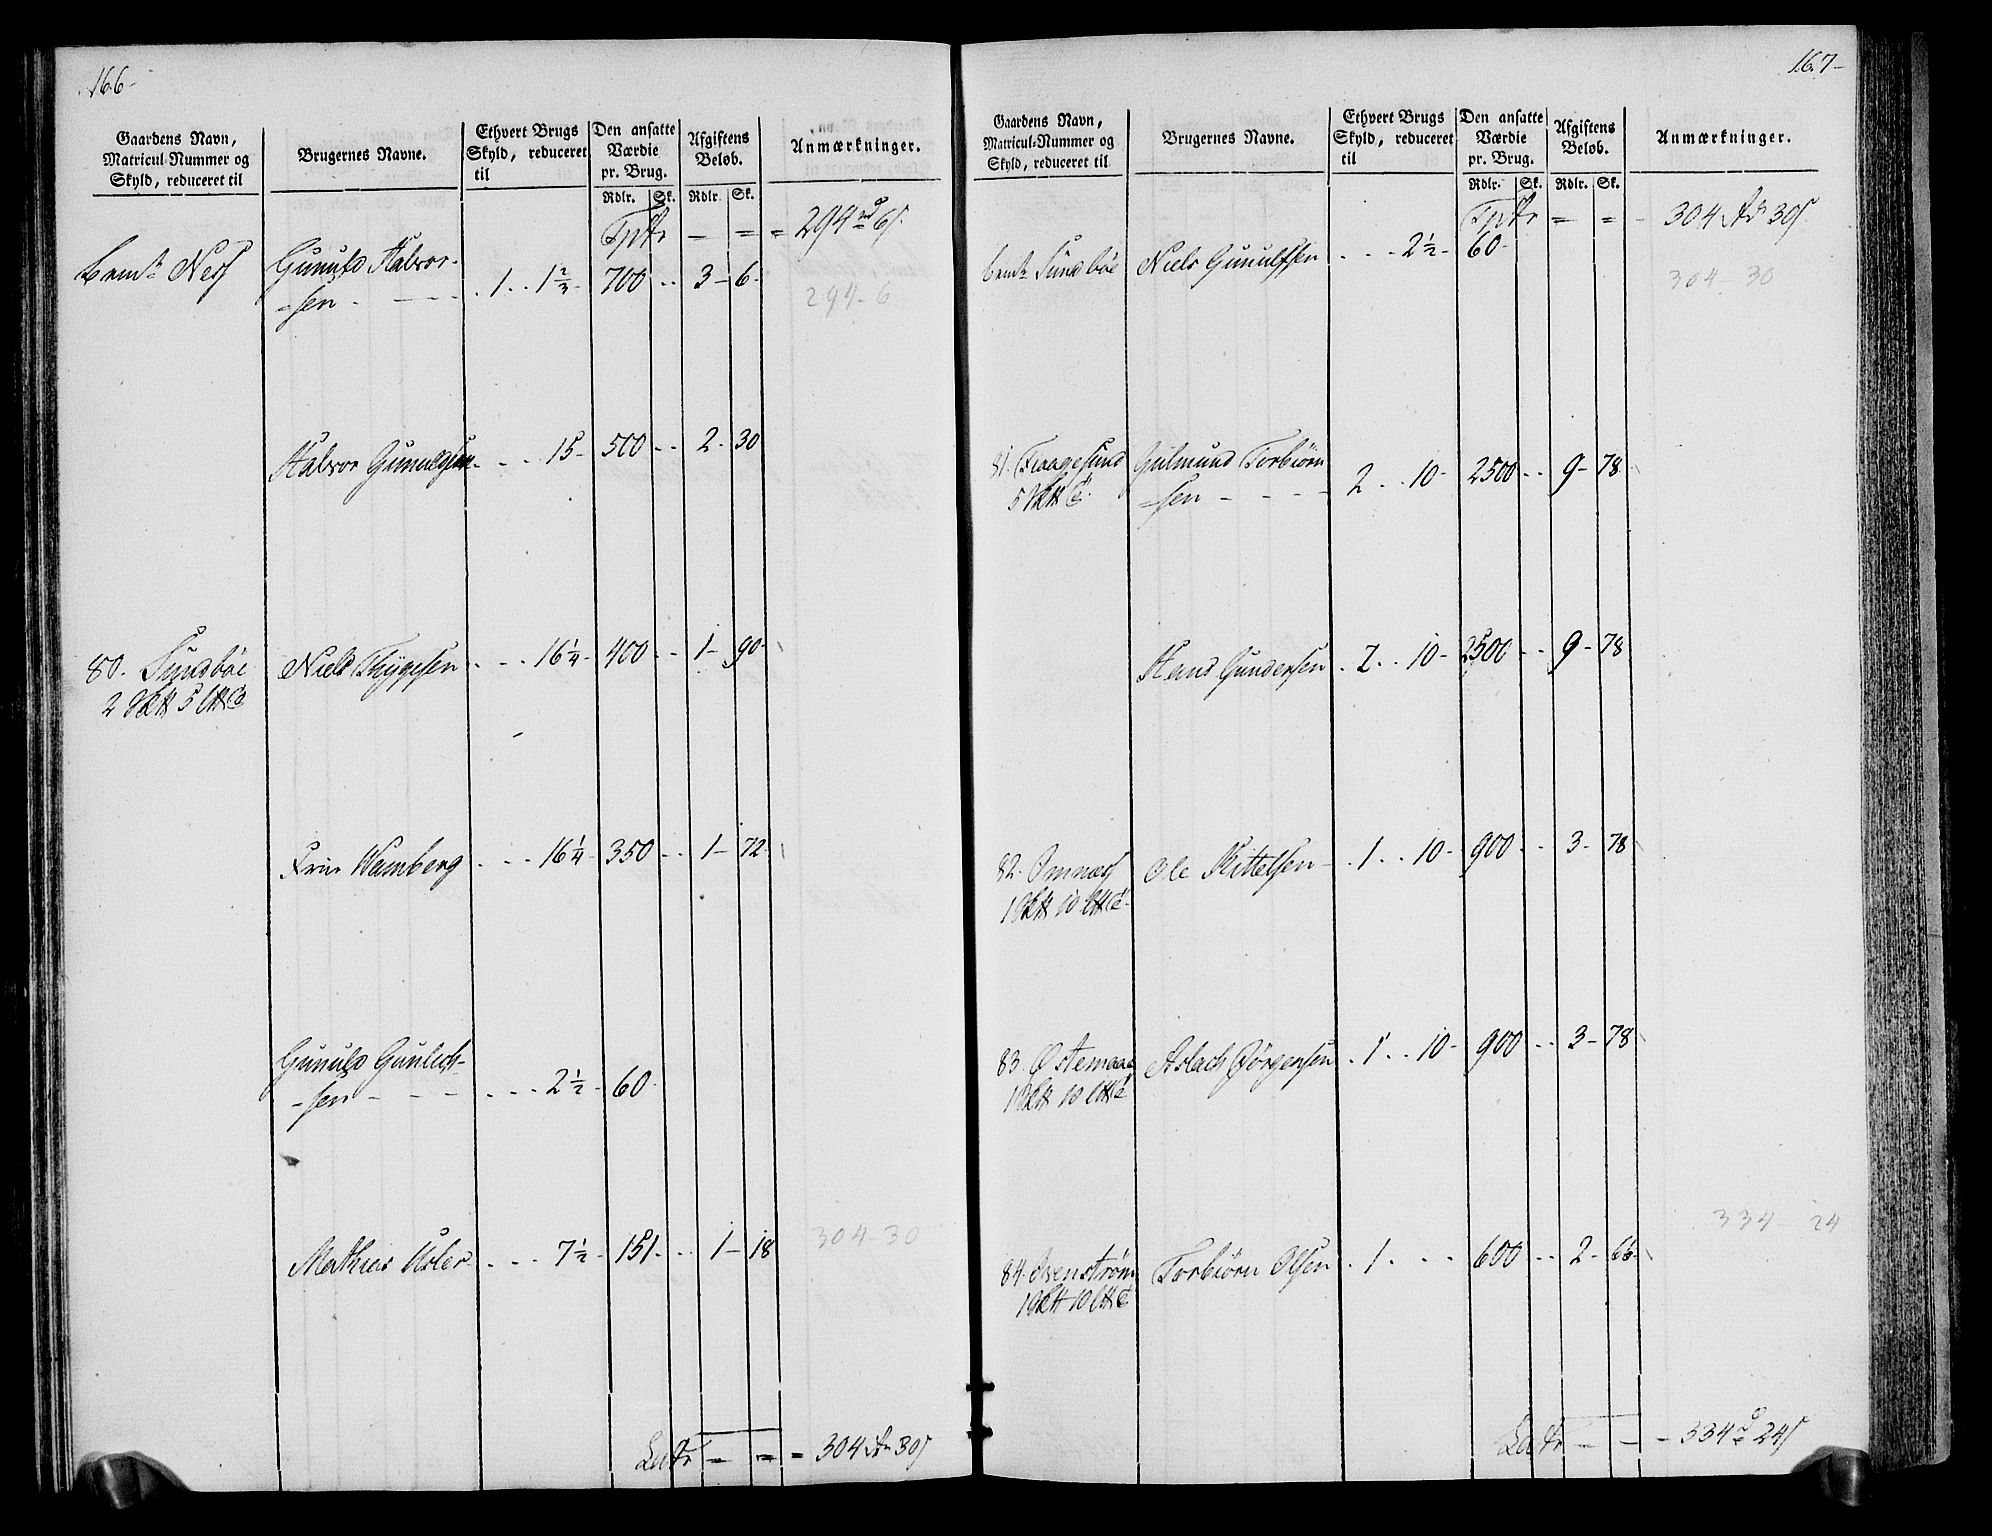 166-
Gaardens Navn, Matricul-Nummer og Skyld, reduceret til
Brugernes Navne.
Ethvert Brugs Skyld, reduceret til
Den ansatte Værdie pr. Brug.
Afgiftens Beløb.
Anmærkninger.
Rdlr. Sk. Rdlr. Sk.
Tpt. - = = 294 rd 6 s.
Næs Gunuld Halvor-
-sen - - - . 1 . . 1 2/3 - 700 . . 3 - 6 -
294 - 6
Halvor Gunuldsen . . . 15 - 500 - - 2 - 30
80. Sundbøe Niels Thygesen . . . 16 1/4 - 400 - - 1 - 90 -
2 5
Friis Wamberg . . . 16 1/4 - 350 . . 1 - 72 -
Gunuld Gunlech-
-sen - - - . . . 2 1/2 - 60 -
Mathias Usler . . . 7 1/2 - 151 - . . 1 - 18
304 - 30
Latr = = = 304 rd 30 s
167-
Gaardens Navn, Matricul-Nummer og Skyld, reduceret til
Brugernes Navne.
Ethvert Brugs Skyld, reduceret til
Den ansatte Værdie pr. Brug.
Afgiftens Beløb.
Anmærkninger.
Rdlr. Sk. Rdlr. Sk.
Tpt. = = - 304 rd 30 s
Sundbøe Niels Gunulfsen . . . 2 1/2 - 60 -
304 - 30
81. Flaagesund Gulmund Torbiørn
5 -sen - - - - 2 . . 10 - 2500 - - 9 - 78
Hans Gundersen . 2 . . 10 - 2500 - - 9 - 78
82. Omnæs Ole Kittelsen - . 1 . . 10 - 900 . . 3 - 78
1 10
83. Østemaae Aslach Jørgensen . 1 . . 10 - 900 . . 3 - 78
1 10
334 - 24
84. Axenstrøm Torbiørn Olsen . 1 . . . 600 . . 2 - 66 -
1 10
Latr = - - 334 rd 24 s